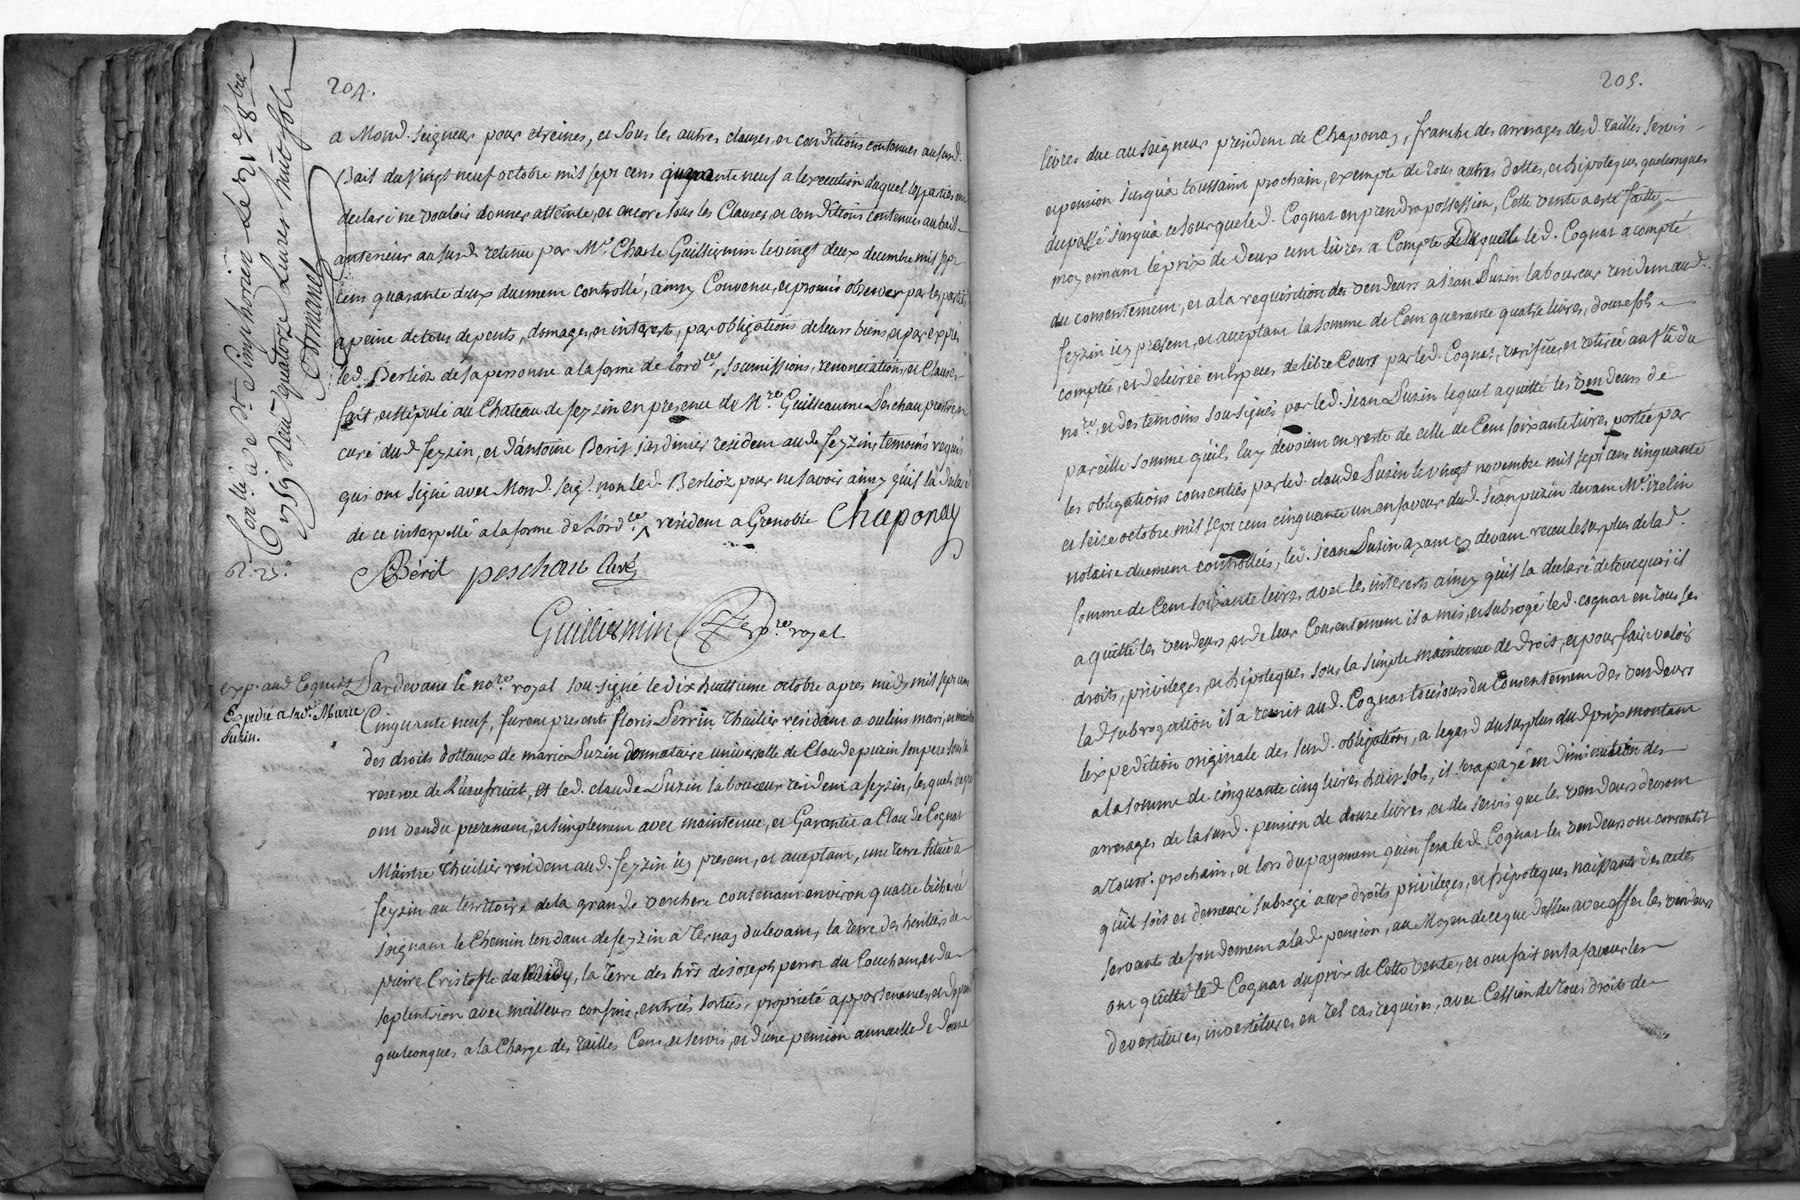 204.
a Mond. seigneur pour etreines, et sous les autres clauses et conditions contenues au susd.
Bail du vingt neuf octobre mil sept cens quarante neuf a lexecution duquel les parties ont
declaré ne vouloir donner atteinte, et encore sous les Clauses et conditions contenues au bail
anterieur au susd. retenu par Me. Charle Guilliermin le vingt deux decembre mil sept
cens quarante deux duement controllé, ainsy Convenu, et promis observer par les parties
a peine de tous depents, domages, et interets, par obligations de leurs biens, et par exprés
led. Berlioz de sa personne a la forme de lordce, soumissions, renonciations, et Clauses
fait, et stipulé au Chateau de feyzin en presence de Mre Guilleaume Peschau pretre
curé dud. feyzin, et d'antoine Berit jardinier resident aud. feyzin, temoins requis
qui ont signé avec Mond. seigr. non led. Berlioz pour ne savoir ainsy qu'il la declaré
de ce interpellé a la forme de l'ordce. resident a Grenoble Chaponay
Bérit peschau Curé
Guilliermin nore royal
Conllé a St. Simphorien le 8bre
1759 Reçu quatorze Livres huit sols
exp. aud Cognat
Expedié a lad. Marie
Puzin.
Pardevant le nore royal sousigné le dix huitieme octobre apres midy mil sept cent
Cinquante neuf, furent presents floris Perrin thuilier residant a oulins mari, et maitre
des droits dottaux de marie Puzin donnataire universelle de Claude puzin son pere sous la
reserve de L'usufruit, et led. claude Puzin laboureur resident a feyzin, lesquels de gré
ont vendu purement, et simplement avec maintenue, et Garantie a Claude Cognat
Maitre thuilier resident aud. feyzin icy present, et aceptant, une terre située a
feyzin au territoire de la grande verchere contenant environ quatre bicherées
joignant le Chemin tendant de feyzin a Ternay du levant, la terre des heritiers de
pierre Cristofle du midy, la terre des hrs de joseph perroz du Couchant, et du
septention avec meilleurs confins, entrées sorties, proprieté appartenances, et dependces
quelconques a la Charge des tailles Cens, et servis, et d'une pension annuelle de douze
205.
livres due au seigneur president de Chaponay, franche des arrerages desd. tailles servis
et pension jusqua toussaint prochain, exempte de tous autres dettes, et hipoteques quelconques
du passé jusqua ce jour que led. Cognat en prendra possession, Cette vente a eté faitte
moyennant le prix de deux cent livres a Compte de laquelle led. Cognat a compté
du consentement, et a la requisition des vendeurs a jean Puzin laboureur resident aud.
feyzin icy present, et aceptant la somme de Cent quarante quatre livres, douze sols
comptée, et delivrée en Especes de libre Cours par led. Cognat, verifiée, et retirée au vû du
nore, et des temoins sousignés par led. jean Puzin lequel a quitté les vendeurs de
pareille somme qu'ils luy devoient en reste de celle de Cent soixante livres portée par
les obligations consenties par led. claude Puzin le vingt novembre mil sept cens cinquante
et seize octobre mil sept cens cinquante un en faveur dud. jean puzin devant Me izelin
notaire duement controllées, led. jean Puzin ayant cy devant receu le surplus de lad.
somme de Cent soixante livres avec les interets ainsy qu'il la declaré de tout quoi il
a quitté les vendeurs, et de leur Consentement il a mis, et subrogé led. cognat en tous ses
droits, privileges, et hipoteques sous la simple maintenue de droit, et pour faire valoir
lad subrogation il a remis aud. Cognat toujours du Consentement des vendeurs
lexpedition originale des susd. obligations, a legard du surplus dud prix montant
a la somme de cinquante cinq livres huit sols, il sera payé en diminution des
arrerages de la susd. pension de douze livres, et des servis que les vendeurs devront
a touss. prochain, et lors du payement qu'en fera led. Cognat les vendeurs ont consentit
qu'il soit et demeure subrogé aux droits privileges, et hipoteques naissants des actes
servants de fondement a lad. pension, au Moyen de ce que dessus avec effet les vendeurs
ont quitté led. Cognat du prix de Cette vente, et ont fait en sa faveur les
devestitures, investitures en tel cas requises, avec Cession de tous droits de